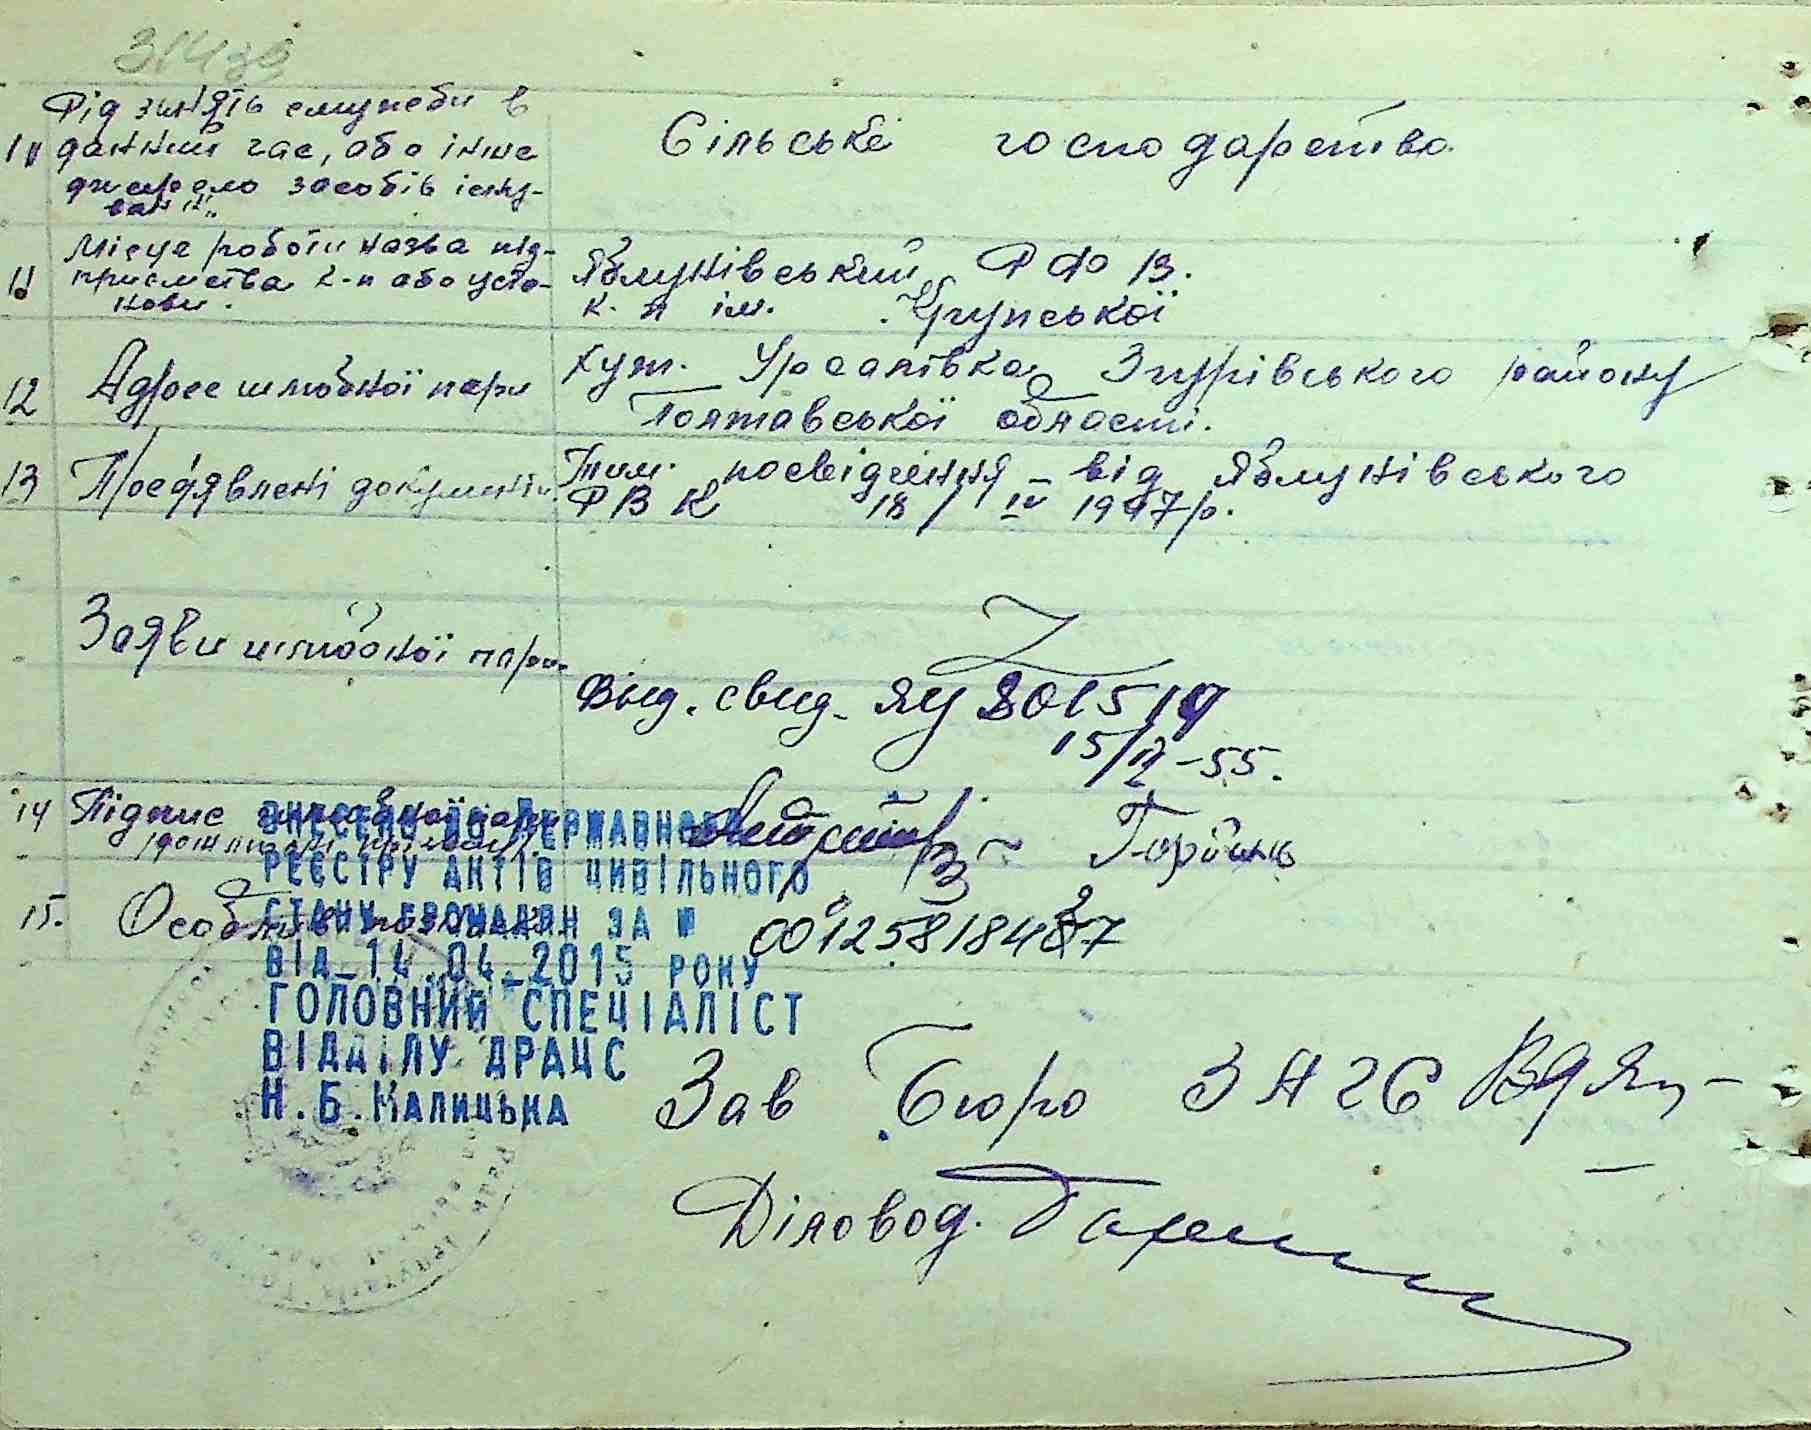 Рід занять служби в
даний час, або інше
джерело засобів існу-
вання
Сільське господарство.
11 Місце роботи назва під-
приємства к-п або уста-
нови.
Яблунівський
к. п ім. Крупської
12 Адрес шлюбної пари
хут. Згурівського району
Полтавської області.
13 Пред'явлені документи
Тим. посвідчення від Яблунівського
РВК 18/IV 1947р.
Заяви шлюбної пари
Выд. свид. ЯУ
15/ -55.
14 Підпис шлюбної пари
15. Особливі
ВНЕСЕНО ДО ДЕРЖАВНОГО
РЕЄСТРУ АКТІВ ЦИВІЛЬНОГО
СТАНУ ГРОМАДЯН ЗА №
ВІД 14.04.2015 РОКУ
ГОЛОВНИЙ СПЕЦІАЛІСТ
ВІДДІЛУ ДРАЦС
Н.Б.Калицька
Зав Бюро ЗАГС
Діловод.